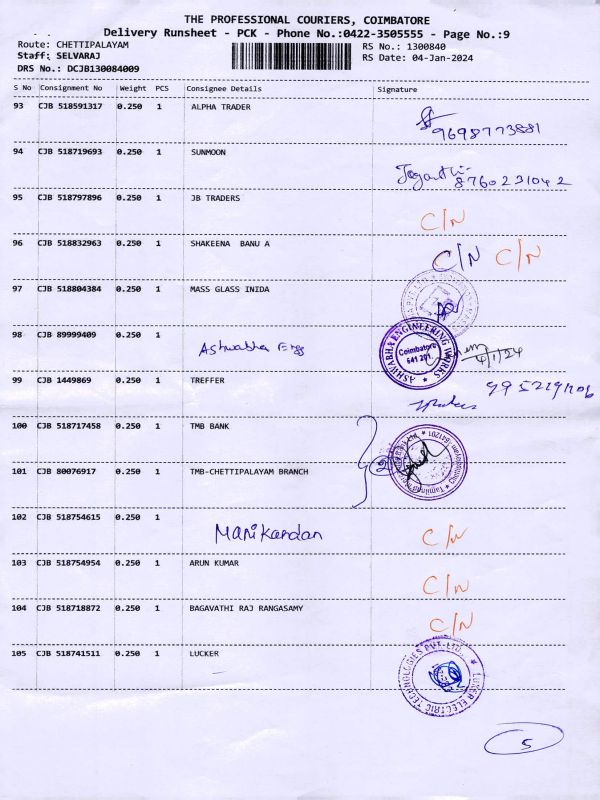 THE PROFESSIONAL COURIERS, COIMBATORE
Delivery Runsheet - PCK - Phone No.:0422-3505555 - Page No.:9
Route: CHETTIPALAYAM
RS No.: 1300840
Staff: SELVARAJ
RS Date: 04-Jan-2024
DRS No.: DCJB130084009
S No Consignment No Weight PCS Consignee Details Signature
93 CJB 518591317 0.250 1 ALPHA TRADER
9698773881
94 CJB 518719693 0.250 1 SUNMOON
8760231042
95 CJB 518797896 0.250 1 JB TRADERS
C/N
96 CJB 518832963 0.250 1 SHAKEENA BANU A
C/N C/N
97 CJB 518804384 0.250 1 MASS GLASS INIDA
98 CJB 89999409 0.250 1 Ashwabha Engg
ASHWABHA ENGINEERING WORKS
Coimbatore
641 201.
4/1/24
99 CJB 1449869 0.250 1 TREFFER
100 CJB 518717458 0.250 1 TMB BANK
2
101 CJB 80076917 0.250 1 TMB-CHETTIPALAYAM BRANCH
102 CJB 518754615 0.250 1 Manikandan
C/N
103 CJB 518754954 0.250 1 ARUN KUMAR
C/N
104 CJB 518718872 0.250 1 BAGAVATHI RAJ RANGASAMY
C/N
105 CJB 518741511 0.250 1 LUCKER
LUKER ELECTRIC TECHNOLOGIES PVT. LTD.
5